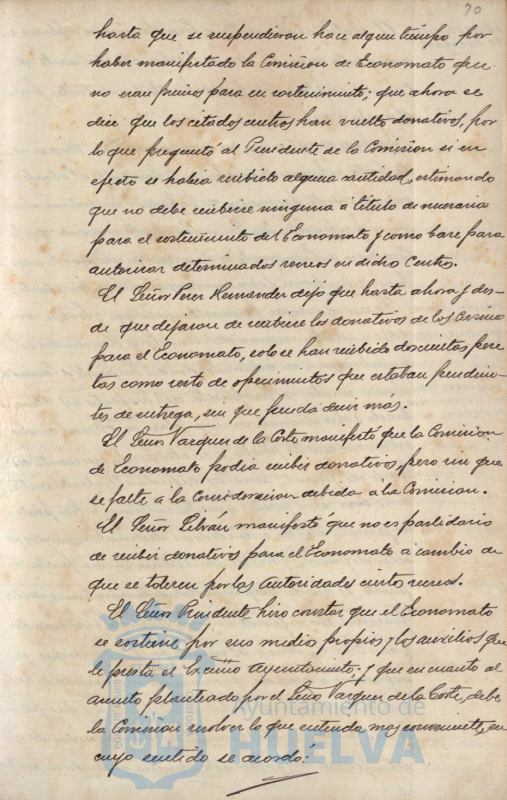 70
hasta que se suspendieron hace algun tiempo por
haber manifestado la Comision de Economato que
no eran precisos para su sostenimiento; que ahora se
dice que los citados centros han vuelto donativos, por
lo que preguntó al Presidente de la Comision si en
efecto se habia recibido alguna cantidad, estimando
que no debe recibirse ninguna á titulo de necesaria
para el sostenimiento del Economato y como base para
autorizar determinados recreos en dicho Centro.
El Señor Perez Hernandez dijo que hasta ahora y des-
de que dejaron de recibirse los donativos de los Casinos
para el Economato, solo se han recibido doscientas pese
tas como resto de ofrecimientos que estaban pendien-
tes de entrega, sin que pueda decir más.
El Señor Vazquez de la Corte manifestó que la Comision
de Economato podia recibir donativos, pero sin que
se falte á la consideracion debida á la Comision.
El Señor manifestó que no es partidario
de recibir donativos para el Economato á cambio de
que se toleren por las autoridades ciertos recreos.
El Señor Presidente hizo constar que el Economato
se sostiene por sus medios propios y los auxilios que
le presta el Excmo Ayuntamiento; y que en cuanto al
asunto planteado por el Señor Vazquez de la Corte, debe
la Comision resolver lo que entienda mas conveniente, en
cuyo sentido se acordó.
Ayuntamiento de
HUELVA